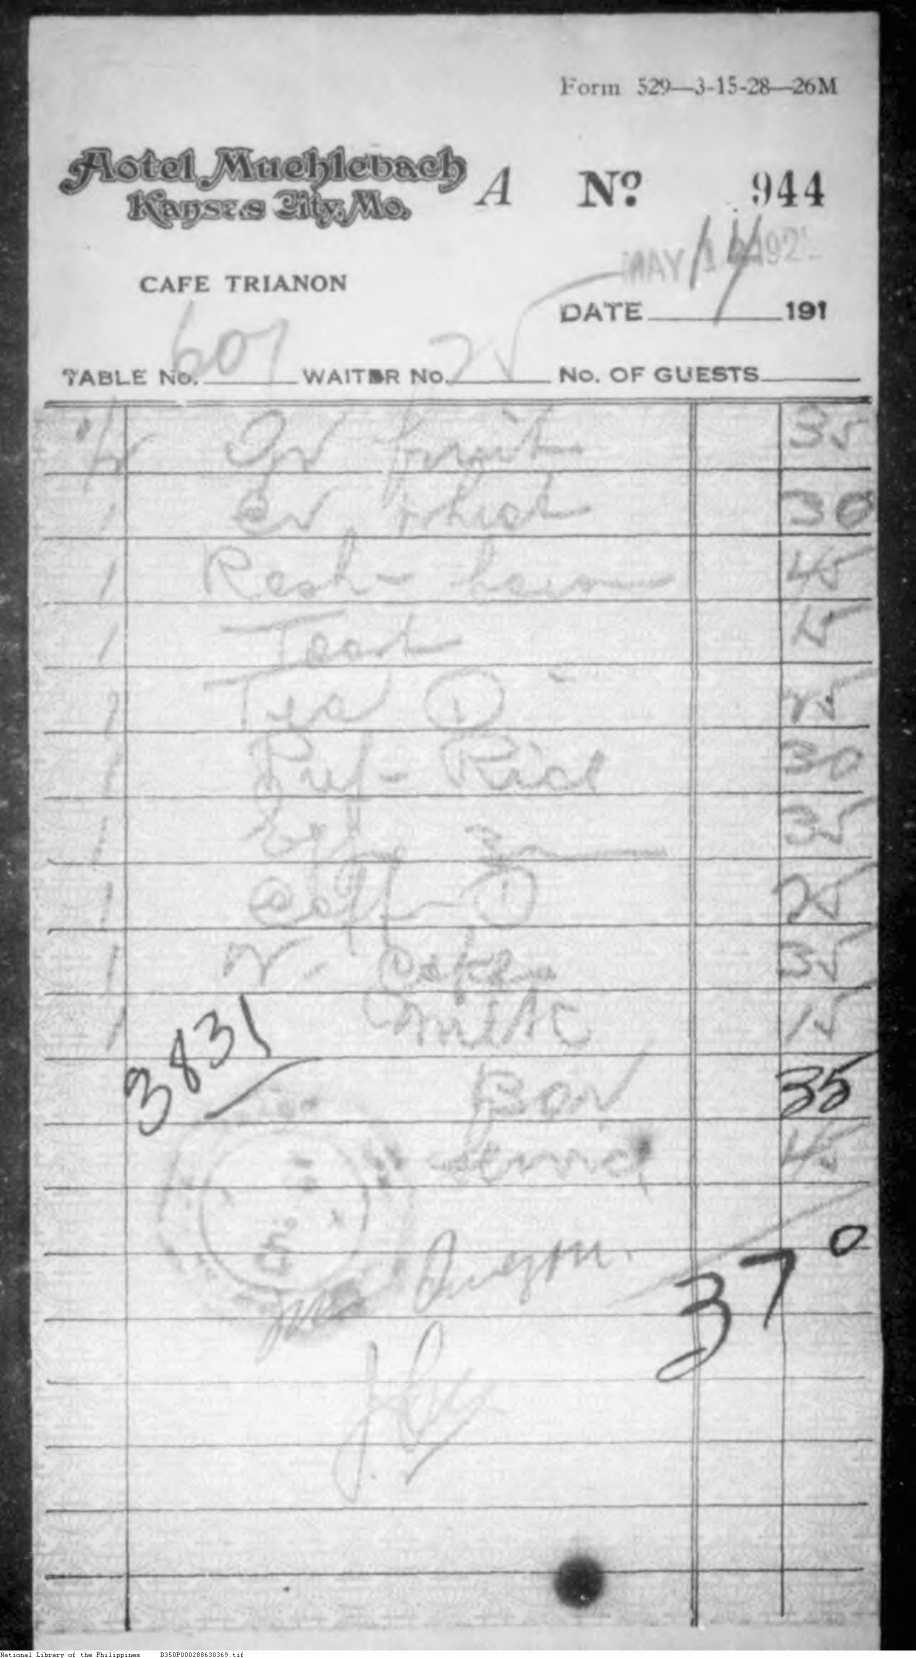 Form 529—3-15-28—26M
Hotel Muehlebach
Kansas City, Mo.
A No. 944
MAY 14 192
CAFE TRIANON
DATE 14 191
TABLE No. 607 WAITER No. 25 No. OF GUESTS
1/2 Gr fruit 35
1 30
1 45
1 Toast 15
1 Tea 1 25
1 30
1 35
1 Coff 1 25
1 Cakes 35
1 milk 15
3831
35
service 45
370
Mr Quezon.
National Library of the Philippines D350P000288630369.tif